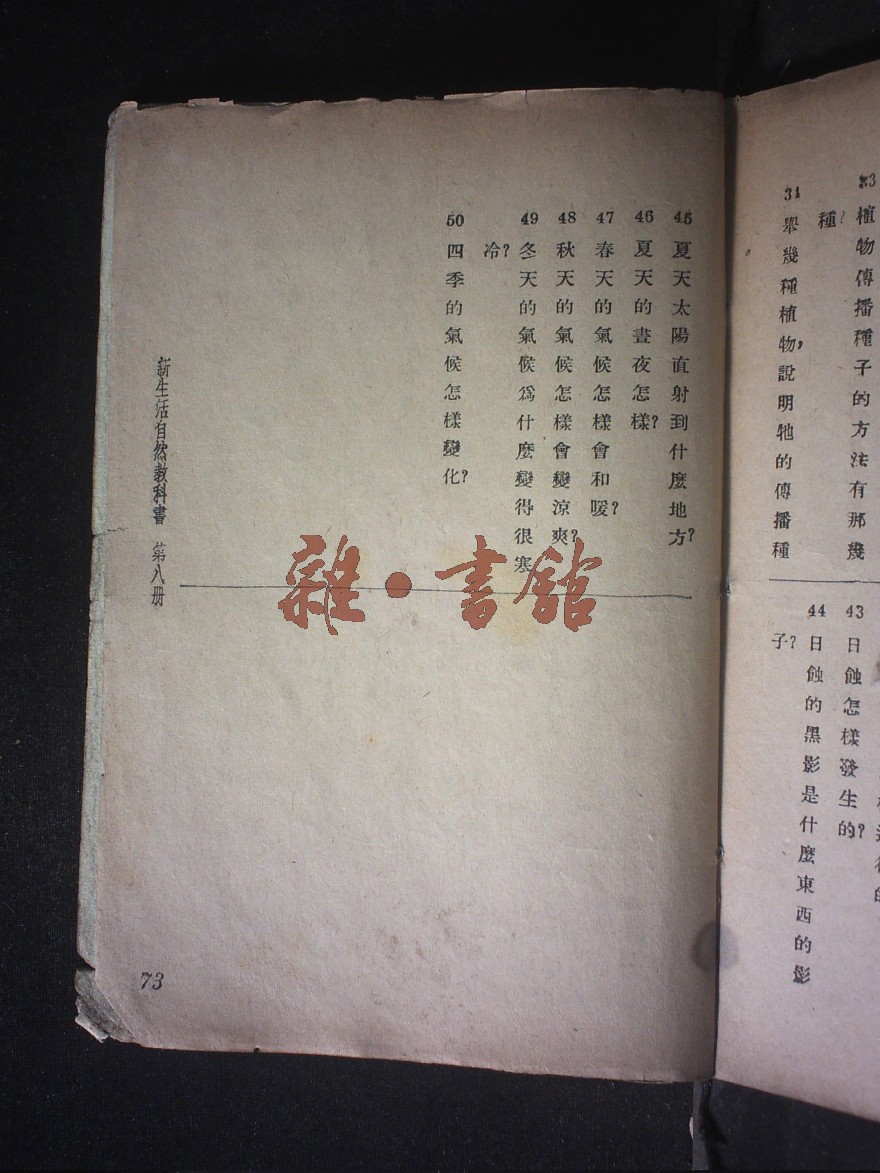 33 植物傳播種子的方法有那幾
種?
34 舉幾種植物,說明牠的傳播種
43 日蝕怎樣發生的?
44 日蝕的黑影是什麼東西的影
子?
45 夏天太陽直射到什麼地方?
46 夏天的晝夜怎樣?
47 春天的氣候怎樣會和暖?
48 秋天的氣候怎樣會變涼爽?
49 冬天的氣候爲什麼變得很寒
冷?
50 四季的氣候怎樣變化?
新生活自然教科書 第八册
73
雜·書館